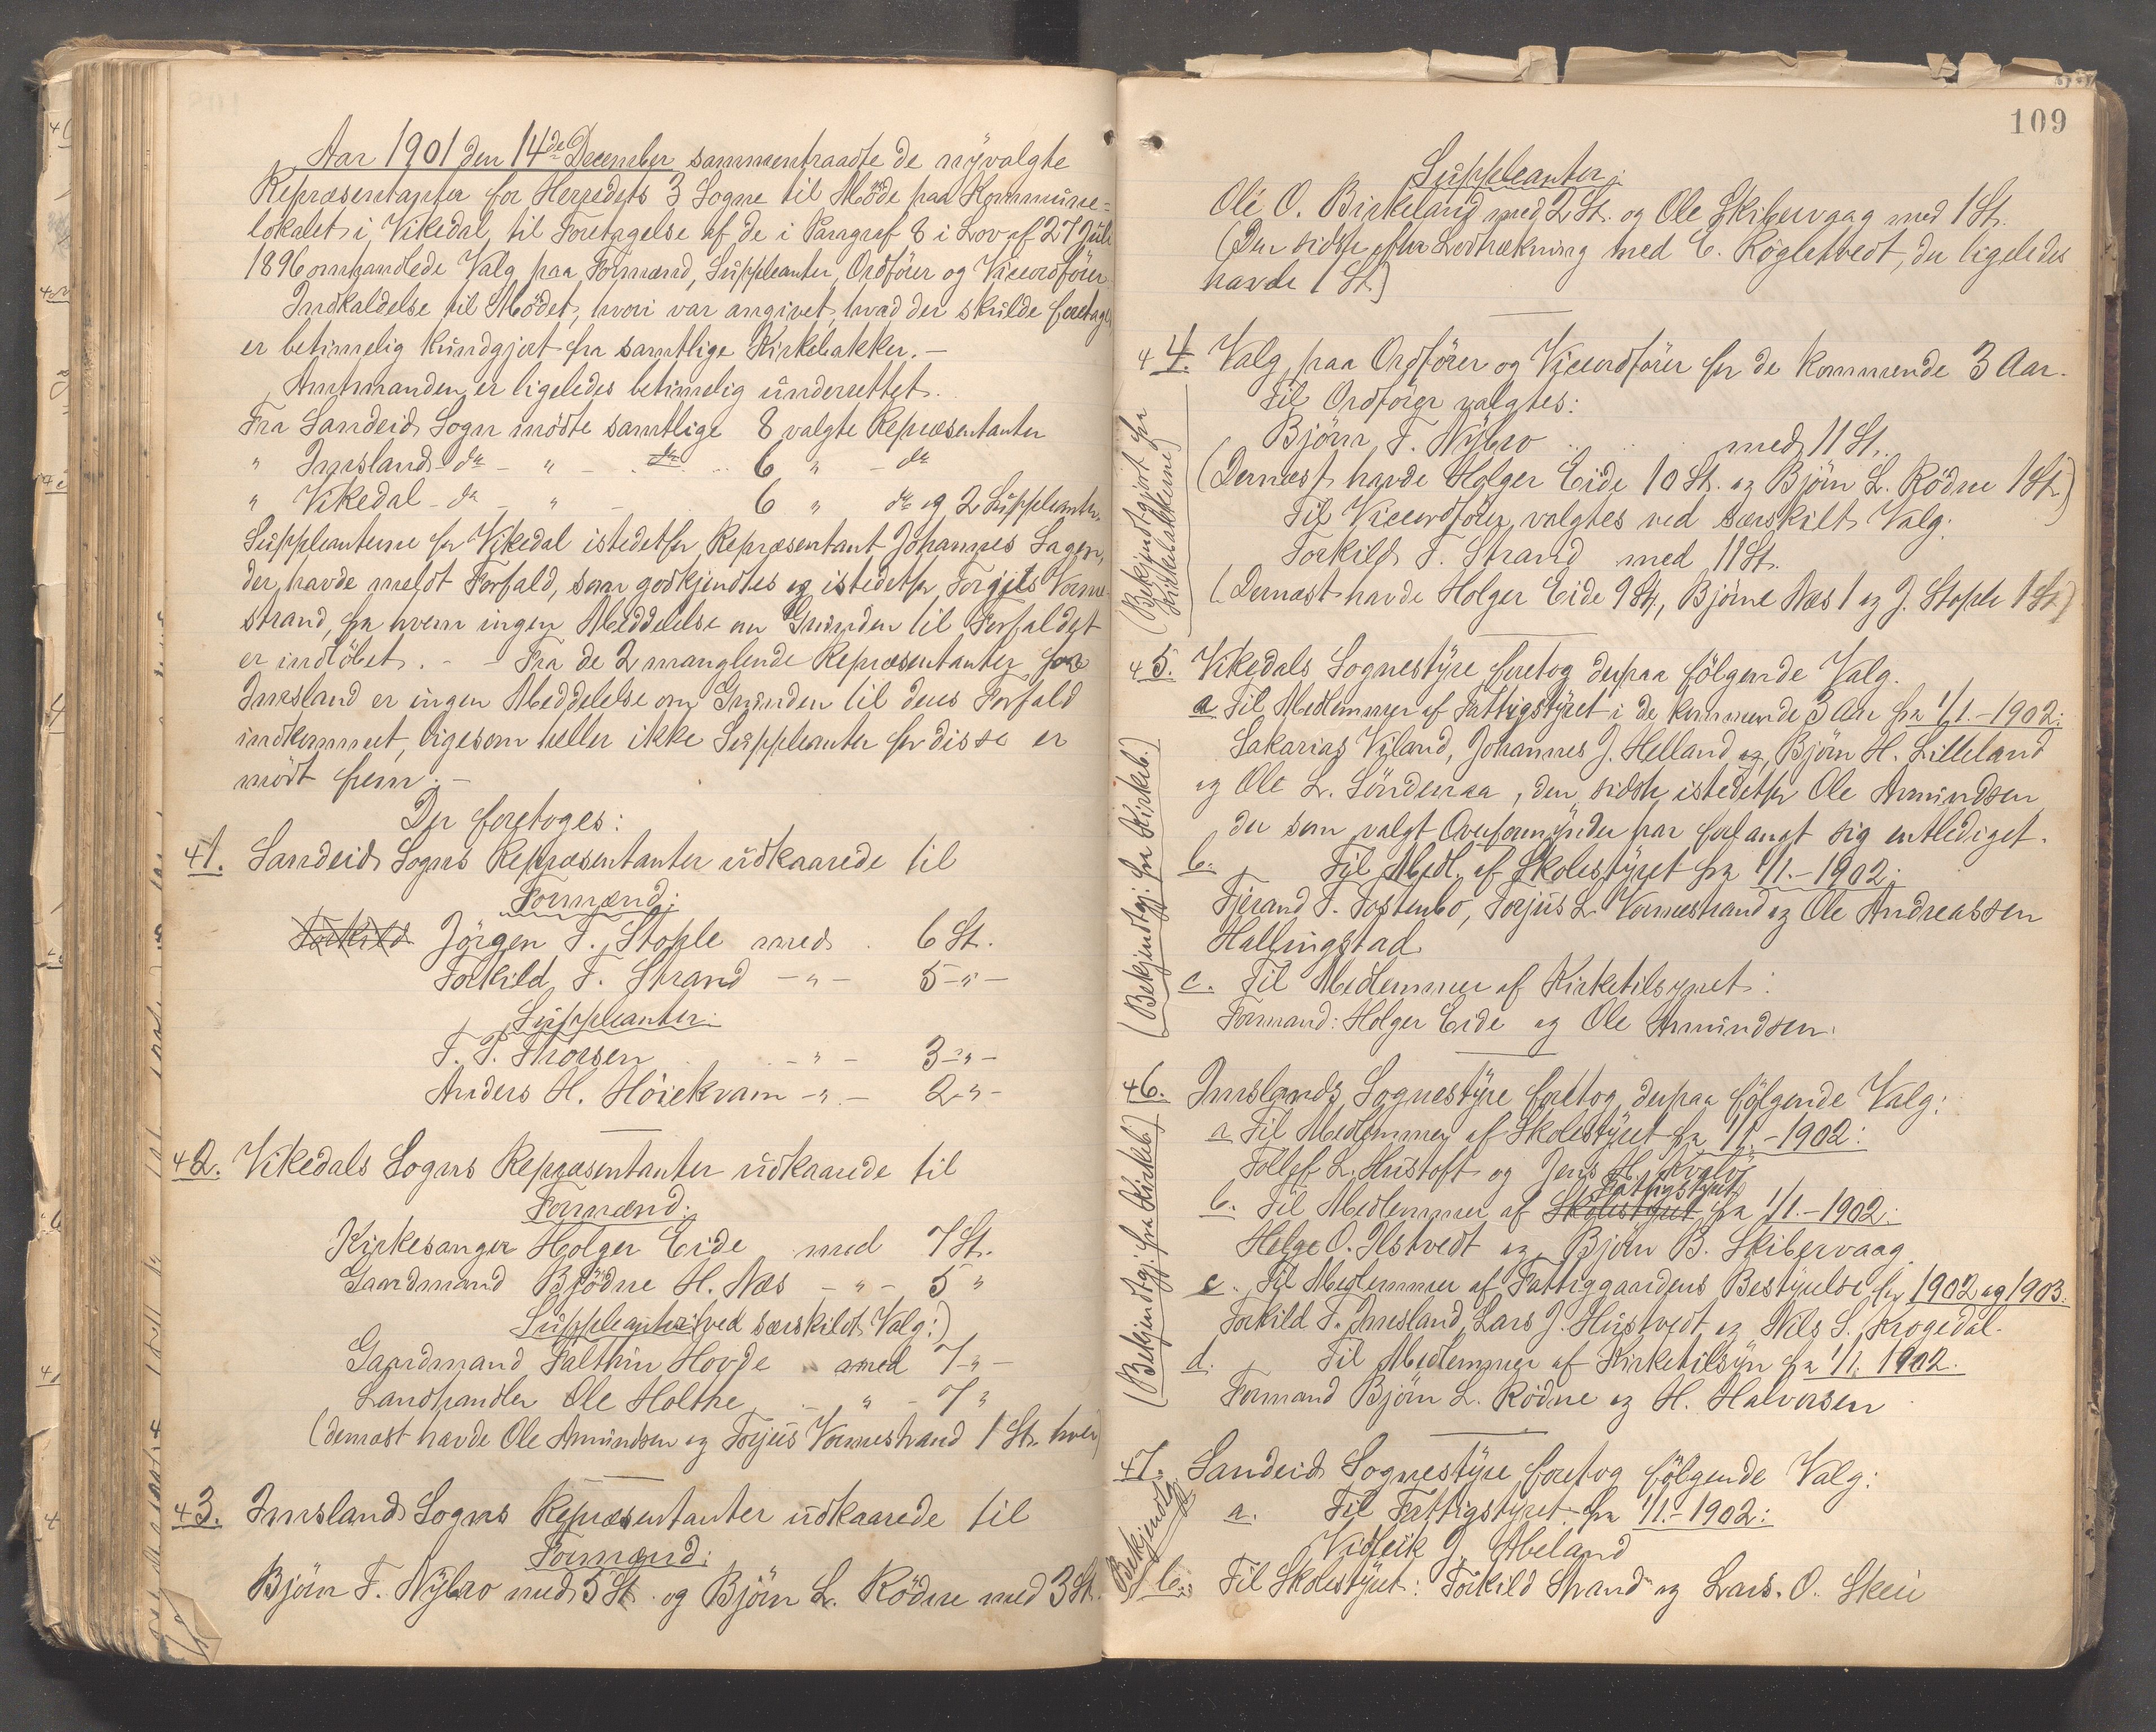 Aar 1901 den 14de December sammentraadte de nyvalgte
Repræsentanter for Herredets 3 Sogne til Möde paa Kommune-
lokalet i Vikedal til Foretagelse af de i Paragraf 8 i Lov af 27 Juli
1896 omhandlede Valg paa Formænd, Suppleanter, Ordförer og Viceordförer.
Indkaldelse til Mödet, hvori var angivet, hvad der skulde foretages
er betimelig kundgjort fra samtlige Kirkebakker. –
Amtmanden er ligeledes betimelig underrettet.
Fra Sandeid Sogn mödte samtlige 8 valgte Repræsentanter
" Imsland do - " - do 6 " - do
" Vikedal - do - " - 6 " do og 2 Suppleanter.
Suppleanterne for Vikedal istedetfor Repræsentant Johannes Sagen,
der havde meldt Forfald, som godkjendtes og istedetfor Torgils Vorme-
strand, fra hvem ingen Meddelelse om Grunden til Forfaldet
er indlöbet. - - Fra de 2 manglende Repræsentanter for
Imsland er ingen Meddelelse om Grunden til deres Forfald
indkommet, ligesom heller ikke Suppleanter for disse er
mödt frem. –
Der foretoges:
41. Sandeid Sogns Repræsentanter udkaarede til
Formænd:
Torkild Jörgen T. Stople med 6 St.
Torkild T. Strand - " - 5 - " -
Suppleanter:
T. T. Thorsen - " - 3 - " -
Anders H. Höiekvam - " - 2 - " -
42. Vikedals Sogns Repræsentanter udkaarede til
Formænd:
Kirkesanger Holger Eide med 7 St.
Gaardmand Bjödne H. Næs - " - 5 "
Suppleanter (ved særskildt Valg:)
Gaardmand Falthin Hovde med 7 - " -
Landhandler Ole Holthe " - 7 "
(dernæst havde Ole Amundsen og Torjus Vormestrand 1 St. hver)
43. Imsland Sogns Repræsentanter udkaarede til
Formænd:
Björn T. Nybro med 5 St. og Björn L. Rödne med 3 St.
109
Suppleanter:
Ole O. Birkeland med 2 St. og Ole Skibervaag med 1 St.
(Den sidste efter Lodtrækning med E. Rögletvedt, der ligeledes
havde 1 St.)
44. Valg paa Ordförer og Viceordförer for de kommende 3 Aar.
Til Ordförer valgtes:
Björn T. Nybro med 11 St.
(Dernæst havde Holger Eide 10 St. og Björn L. Rödne 1 St.)
Til Viceordförer valgtes ved særskilt Valg:
Torkild T. Strand med 11 St.
(Dernæst havde Holger Eide 9 St., Björne Næs 1 og J. Stople 1 St.)
(Bekjendtgjort fra
Kirkebakkerne)
45. Vikedals Sognestyre foretog derpaa fölgende Valg.
a Til Medlemmer af Fattigstyret i de kommende 3 Aar fra 1/1. - 1902:
Sakarias Viland, Johannes J. Helland og Björn H. Lilleland
og Ole L. Söndenaa, den sidste istedetfor Ole Amundsen
der som valgt Overformynder har forlangt sig entlediget.
b. Til Medl. af Skolestyret fra 1/1. - 1902:
Tjerand T. Tostenbö, Torjus L. Vormestrand og Ole Andreassen
Hallingstad.
c. Til Medlemmer af Kirketilsynet:
Formand: Holger Eide og Ole Amundsen.
(Bekjendtgj. fra Kirkeb.)
46. Imslands Sognestyre foretog derpaa fölgende Valg:
a Til Medlemmer af Skolestyret fra 1/1. - 1902:
Tollef L. Hustoft og Jens H. Kvaløi
b. Til Medlemmer af Skolestyret Fattigstyret fra 1/1. - 1902:
Helge O. Ilstvedt og Björn B. Skibervaag.
c. Til Medlemmer af Fattiggaardens Bestyrelse for 1902 og 1903:
Torkild T. Imsland, Lars J. Hustvedt og Nils S. Krogedal.
d. Til Medlemmer af Kirketilsyn fra 1/1. 1902.
Formand Björn L. Rödne og H. Halvorsen
(Bekjendtgj. fra Kirkeb.)
47. Sandeid Sognestyre foretog fölgende Valg:
a. Til Fattigstyret fra 1/1. - 1902:
Vidleik J. Abeland
b. Til Skolestyret: Torkild Strand og Lars O. Skeie
Bekjendtg.